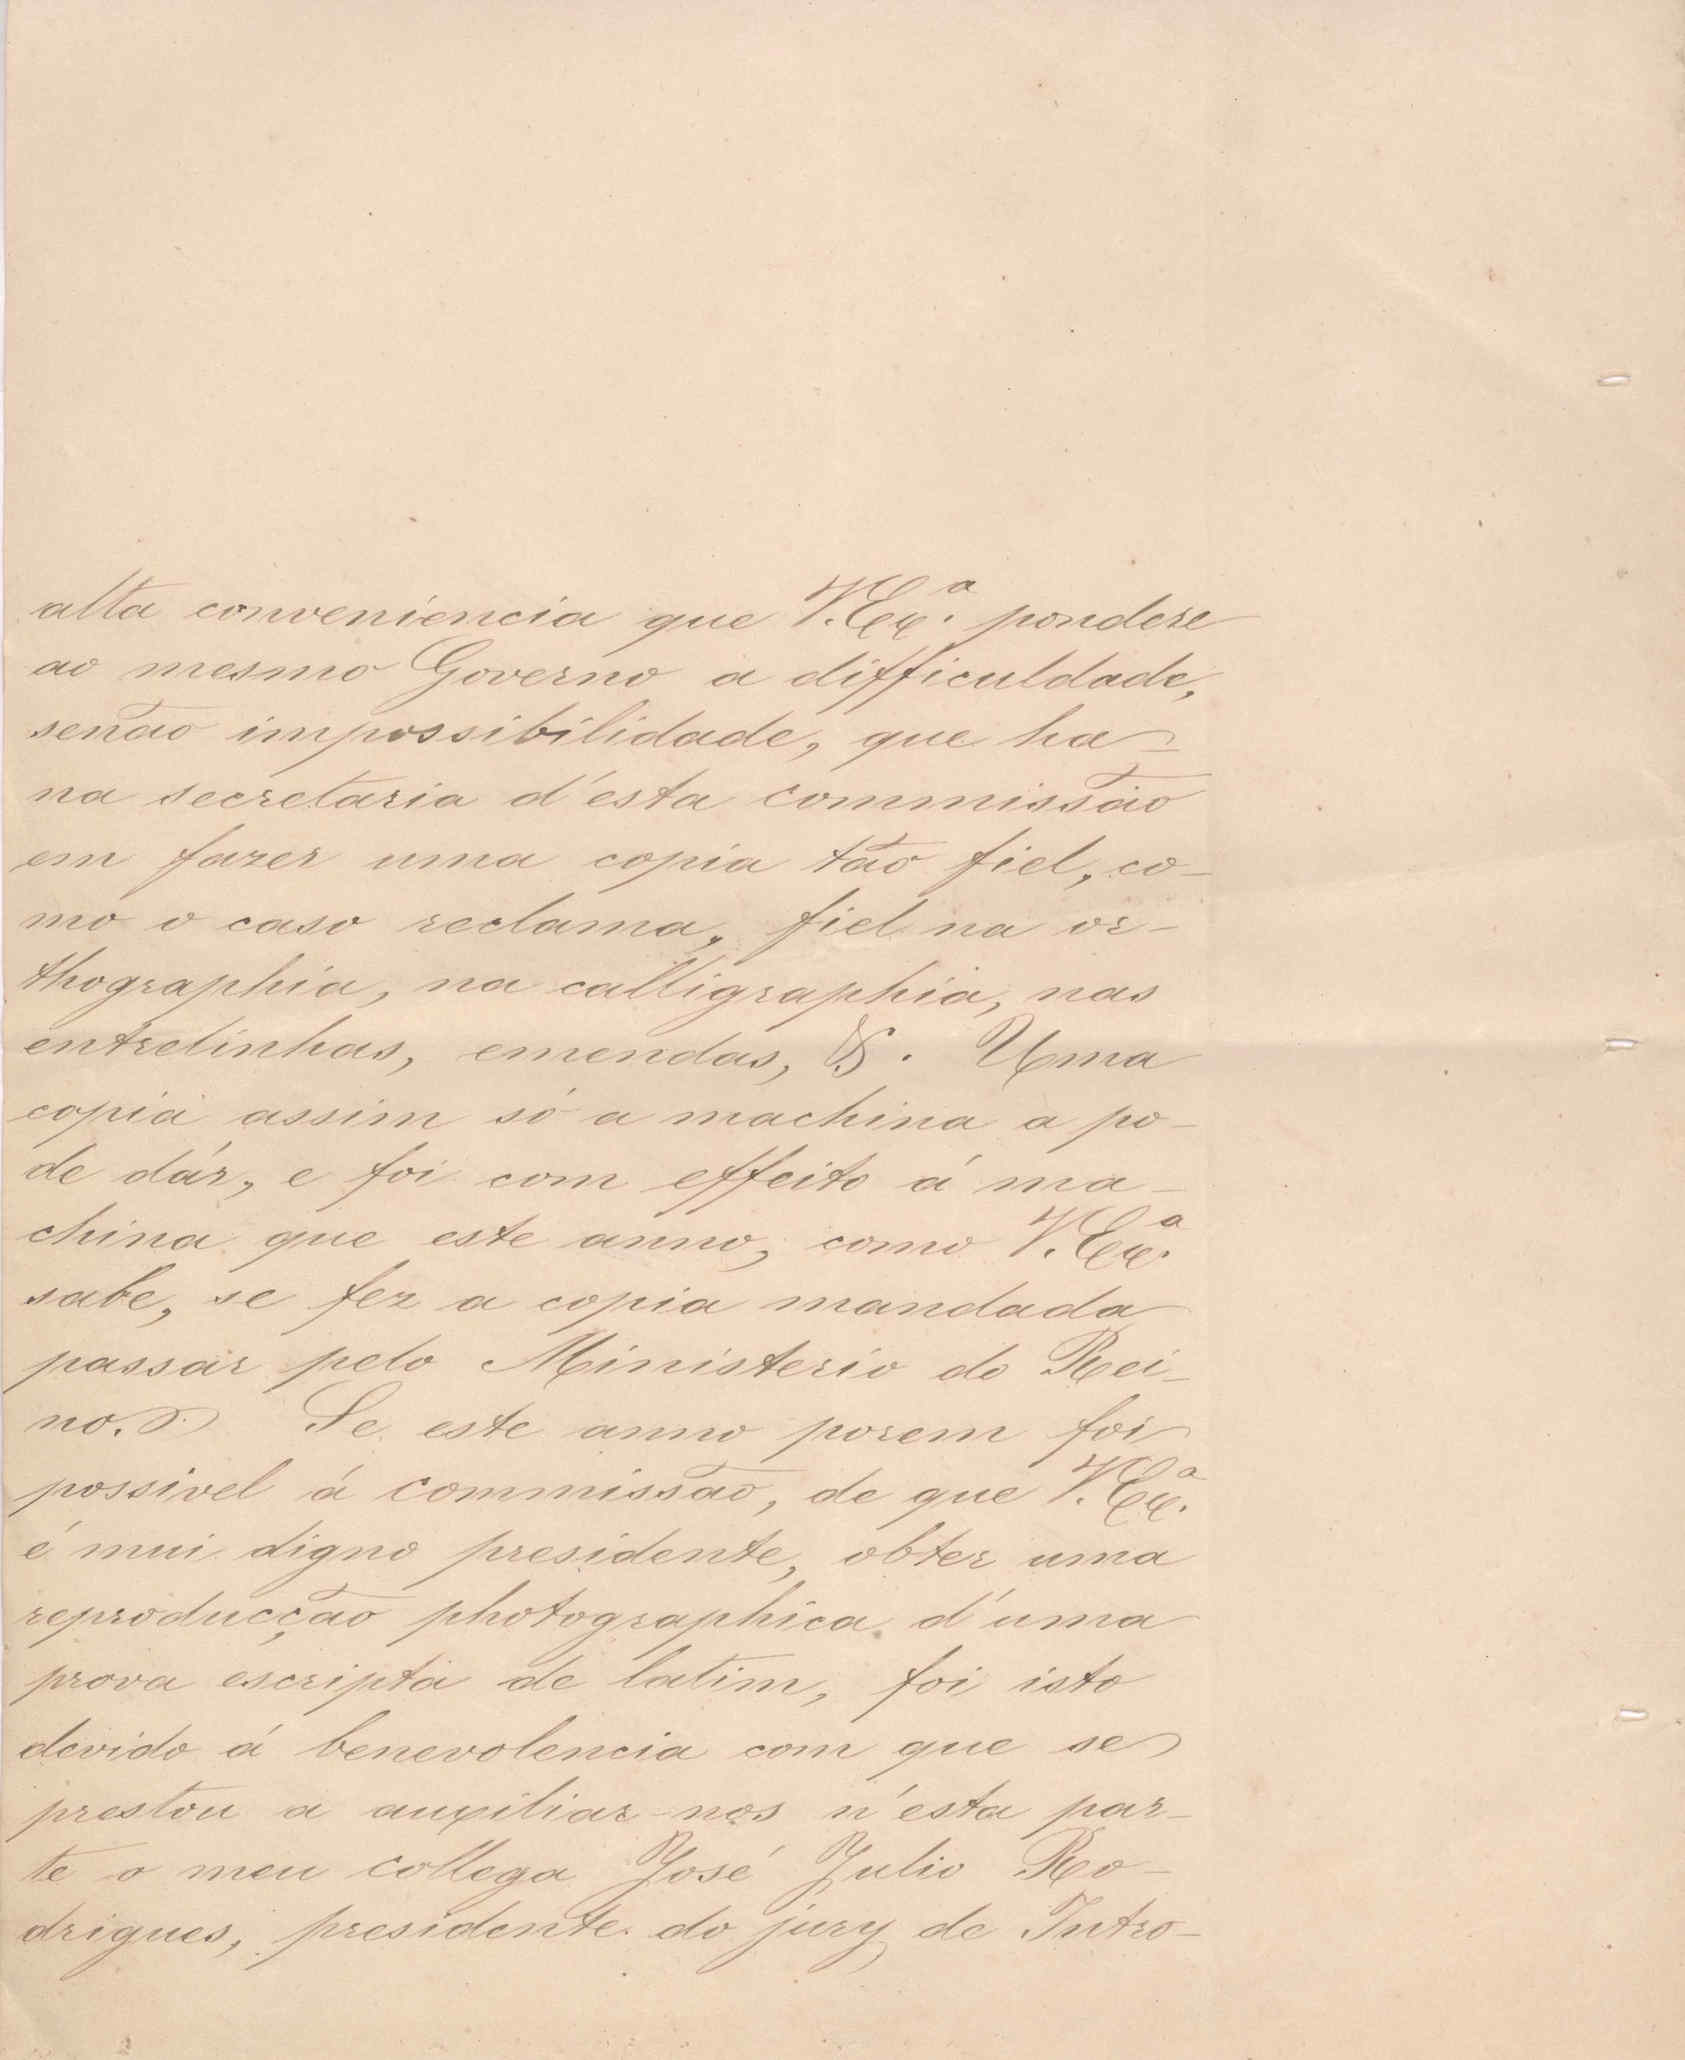 alta conveniencia que V. Ex.ª pondere
ao mesmo Governo a difficuldade,
senão impossibilidade, que ha
na secretaria d'esta commissão
em fazer uma copia tão fiel, co-
mo o caso reclama, fiel na or-
thographia, na calligraphia, nas
entrelinhas, emendas, &. Uma
copia assim só a machina a po-
de dár, e foi com effeito á ma-
china que este anno, como V. Ex.ª
sabe, se fez a copia mandada
passar pelo Ministerio do Rei-
no. Se este anno porem foi
possivel á commissão, de que V. Ex.ª
é mui digno presidente, obter uma
reproducção photographica d'uma
prova escripta de latim, foi isto
devido á benevolencia com que se
prestou a auxiliar-nos n'esta par-
te o meu collega José Julio Ro-
drigues, presidente do jury de Intro-